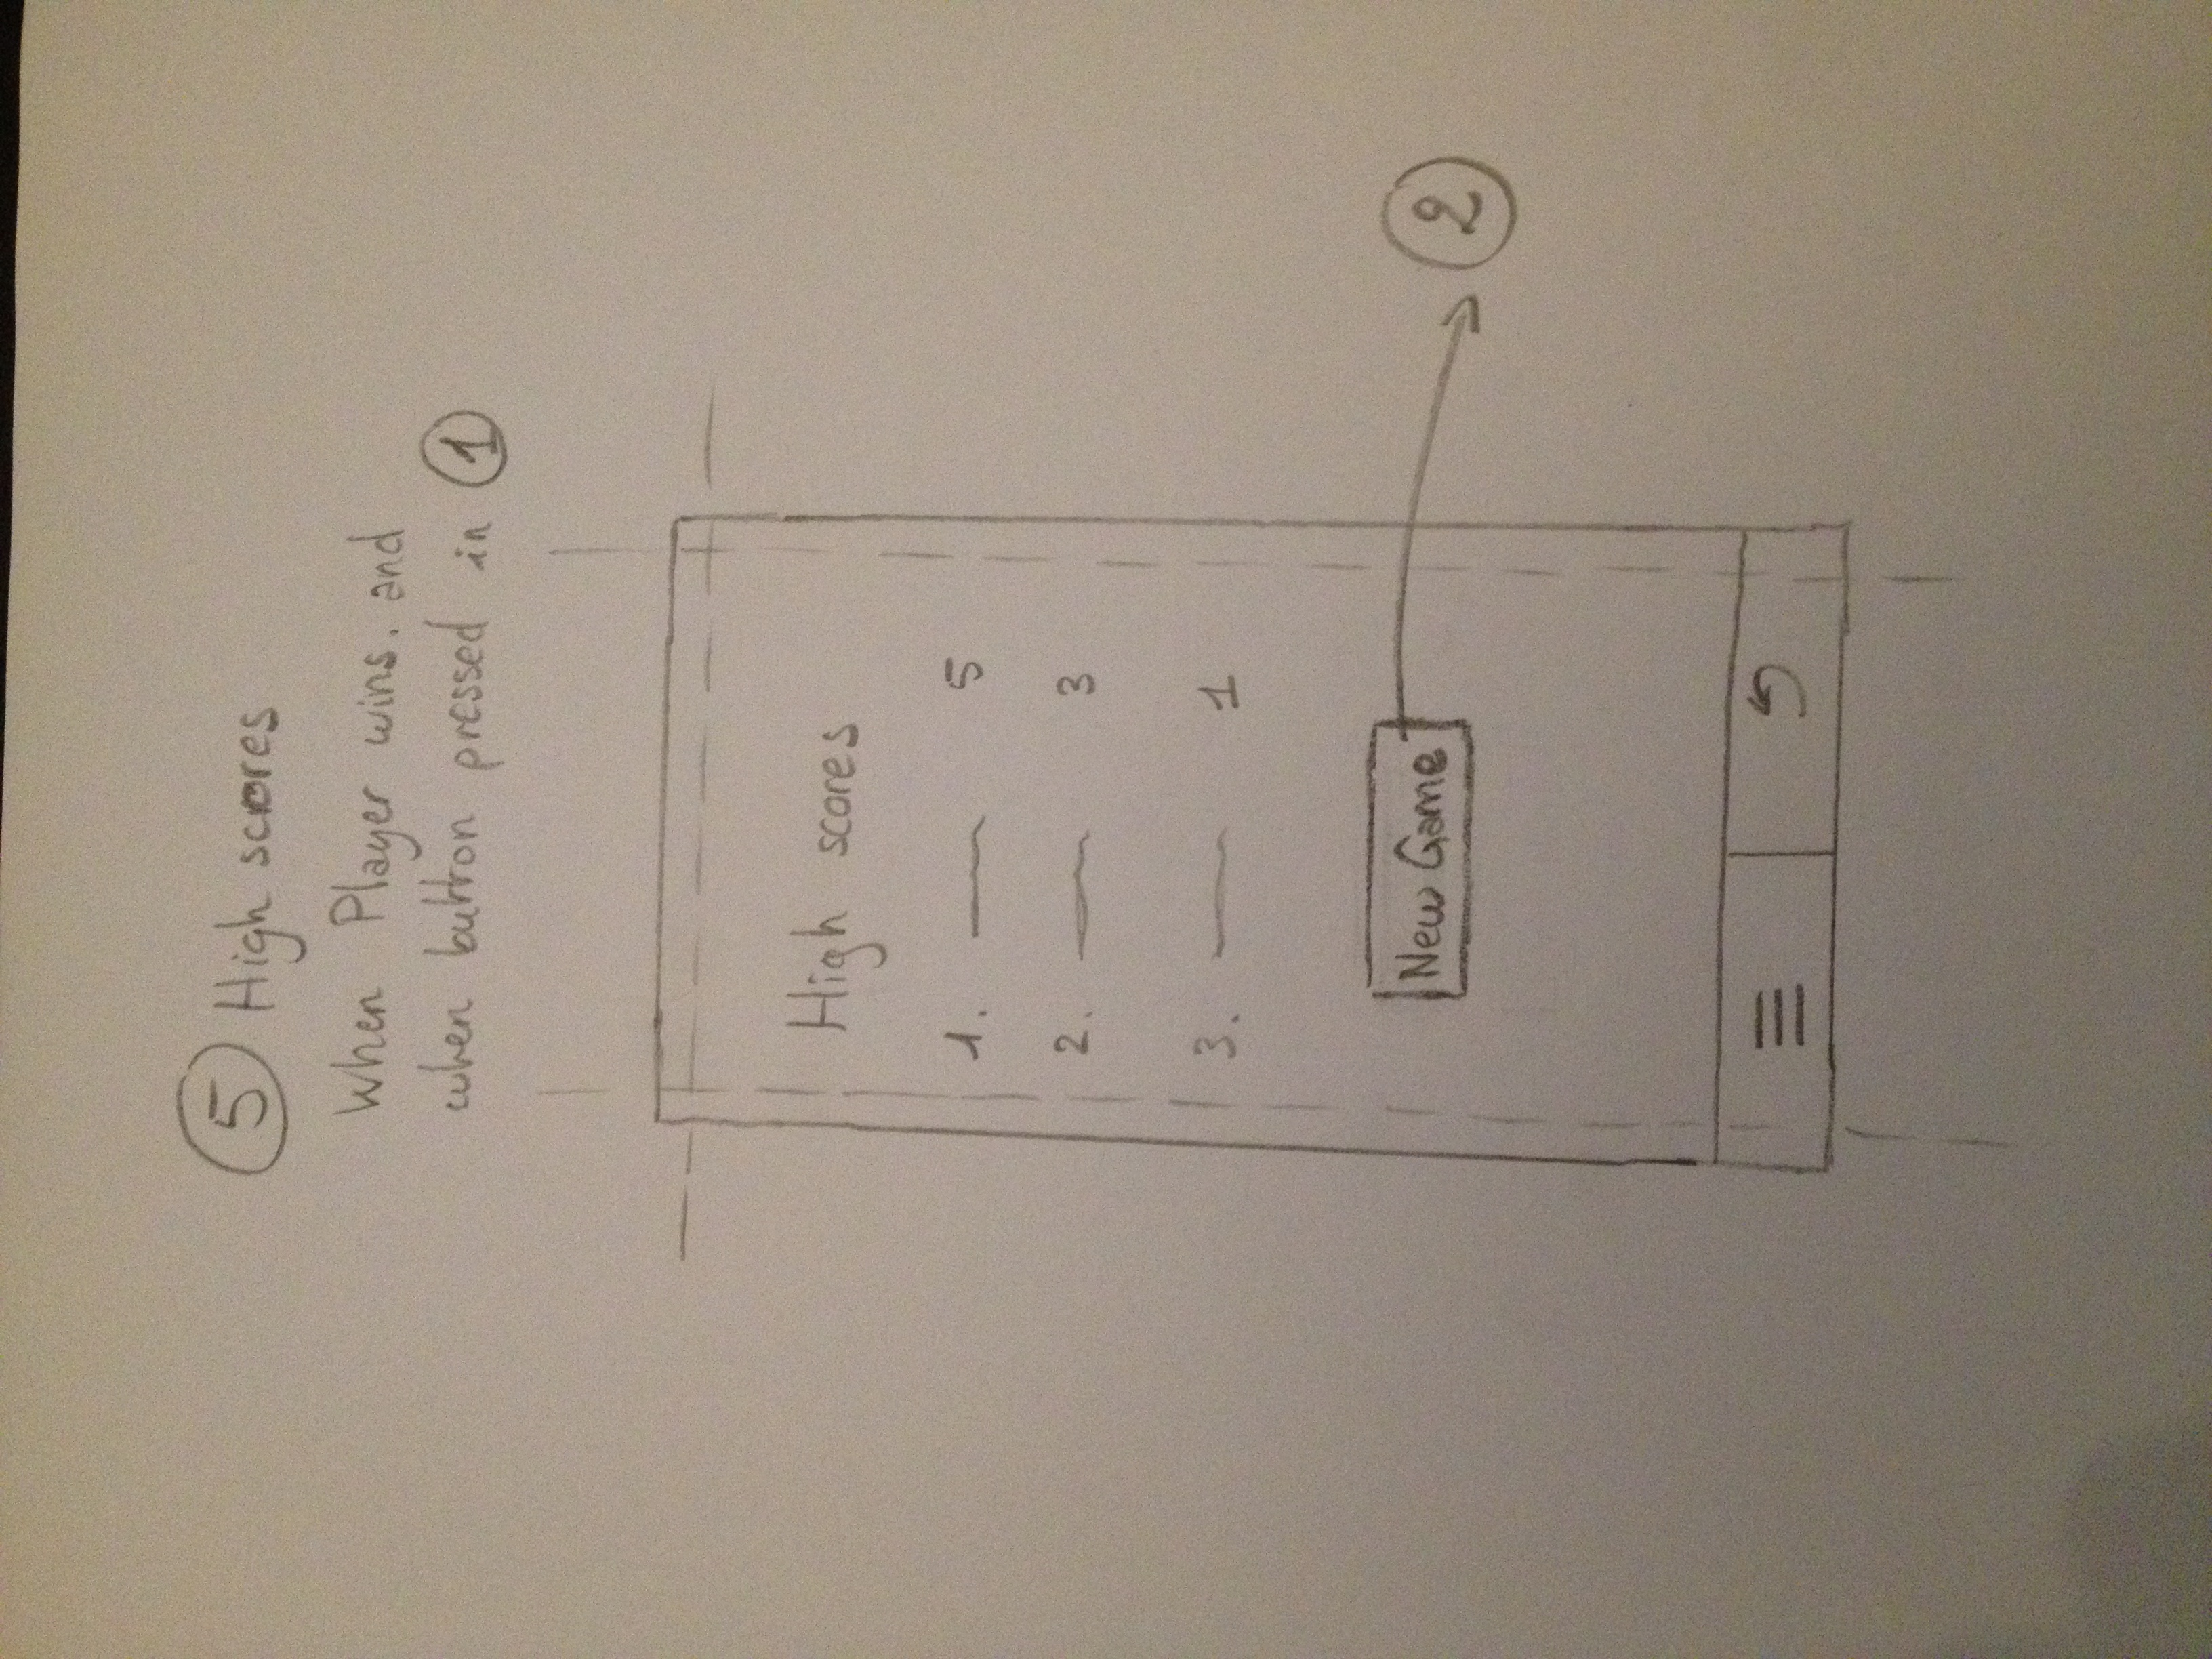 5 High scores
When Player wins. and
when button pressed in 1
High scores
1. 5
2. 3
3. 1
New Game
2